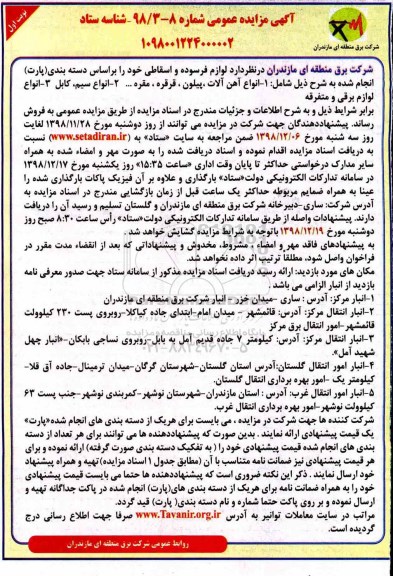 نوبت اول
آگهی مزایده عمومی شماره ۸-۹۸/۳ -شناسه ستاد
۱۰۹۸۰۰۱۲۲۴۰۰۰۰۰۲
شرکت برق منطقه ای مازندران
شرکت برق منطقه ای مازندران درنظردارد لوازم فرسوده و اسقاطی خود را براساس دسته بندی(پارت)
انجام شده به شرح ذیل شامل: ۱-انواع آهن آلات ،پیلون ، قرقره ، مقره ... ۲-انواع سیم، کابل ۳-انواع
لوازم برقی و متفرقه
برابر شرایط ذیل و به شرح اطلاعات و جزئیات مندرج در اسناد مزایده از طریق مزایده عمومی به فروش
رساند. پیشنهاددهندگان جهت شرکت در مزایده می توانند از روز دوشنبه مورخ ۱۳۹۸/۱۱/۲۸ لغایت
روز سه شنبه مورخ ۱۳۹۸/۱۲/۰۶ ضمن مراجعه به سایت «ستاد» به (www.setadiran.ir) نسبت
به دریافت اسناد مزایده اقدام نموده و اسناد دریافت شده را به صورت مهر و امضاء شده به همراه
سایر مدارک درخواستی حداکثر تا پایان وقت اداری «ساعت ۱۵:۳۵» روز یکشنبه مورخ ۱۳۹۸/۱۲/۱۷
در سامانه تدارکات الکترونیکی دولت«ستاد» بارگذاری و علاوه بر آن فیزیک پاکات بارگذاری شده را
عینا به همراه ضمایم مربوطه حداکثر یک ساعت قبل از زمان بازگشایی مندرج در اسناد مزایده به
آدرس شرکت: ساری-دبیرخانه شرکت برق منطقه ای مازندران و گلستان تسلیم و رسید آن را دریافت
دارند. پیشنهادات واصله از طریق سامانه تدارکات الکترونیکی دولت«ستاد» رأس ساعت ۸:۳۰ صبح روز
دوشنبه مورخ ۱۳۹۸/۱۲/۱۹ باتوجه به شرایط مزایده گشایش خواهد شد.
به پیشنهادهای فاقد مهر و امضا ، مشروط، مخدوش و پیشنهاداتی که بعد از انقضاء مدت مقرر در
فراخوان واصل شود، مطلقا ترتیب اثر داده نخواهد شد.
مکان های مورد بازدید: ارائه رسید دریافت اسناد مزایده مذکور از سامانه ستاد جهت صدور معرفی نامه
بازدید از انبار الزامی می باشد
۱-انبار مرکز: آدرس : ساری -میدان خزر- انبار شرکت برق منطقه ای مازندران
۲-انبار انتقال مرکز: آدرس: قائمشهر - میدان امام-ابتدای جاده کیاکلا-روبروی پست ۲۳۰ کیلوولت
قائمشهر-امور انتقال برق مرکز
۳-انبار انتقال مرکز: آدرس: کیلومتر ۷ جاده قدیم آمل به بابل-روبروی نساجی بابکان-«انبار چهل
شهید آمل».
۴-انبار امور انتقال گلستان:آدرس استان گلستان-شهرستان گرگان-میدان ترمینال-جاده آق قلا-
کیلومتر یک -امور بهره برداری انتقال گلستان.
۵-انبار امور انتقال غرب: آدرس : استان مازندران-شهرستان نوشهر-کمربندی نوشهر-جنب پست ۶۳
کیلوولت نوشهر-امور بهره برداری انتقال غرب.
شرکت کننده ها جهت شرکت در مزایده ، می بایست برای هریک از دسته بندی های انجام شده«پارت»
یک قیمت پیشنهادی ارائه نمایند . بدین صورت که پیشنهاددهنده ها می توانند برای هر تعداد از دسته
بندی های انجام شده قیمت پیشنهادی خود را ( به تفکیک دسته بندی صورت گرفته) ارائه نموده و برای
هر قیمت پیشنهادی نیز ضمانت نامه متناسب با آن (مطابق جدول ۱ اسناد مزایده) تهیه و همراه پیشنهاد
خود ارسال نمایند . ذکر این نکته ضروری است که پیشنهاددهنده ها حتما می بایست قیمت پیشنهادی
خود را به همراه ضمانت نامه برای هریک از دسته بندی های(پارت) انجام شده در پاکت جداگانه تهیه و
ارسال نموده و بر روی پاکت حتما شماره و نام دسته بندی( پارت) قید گردد.
مراتب در سایت معاملات توانیر به آدرس www.Tavanir.org.ir صرفا جهت اطلاع رسانی درج
گردیده است.
روابط عمومی شرکت برق منطقه ای مازندران